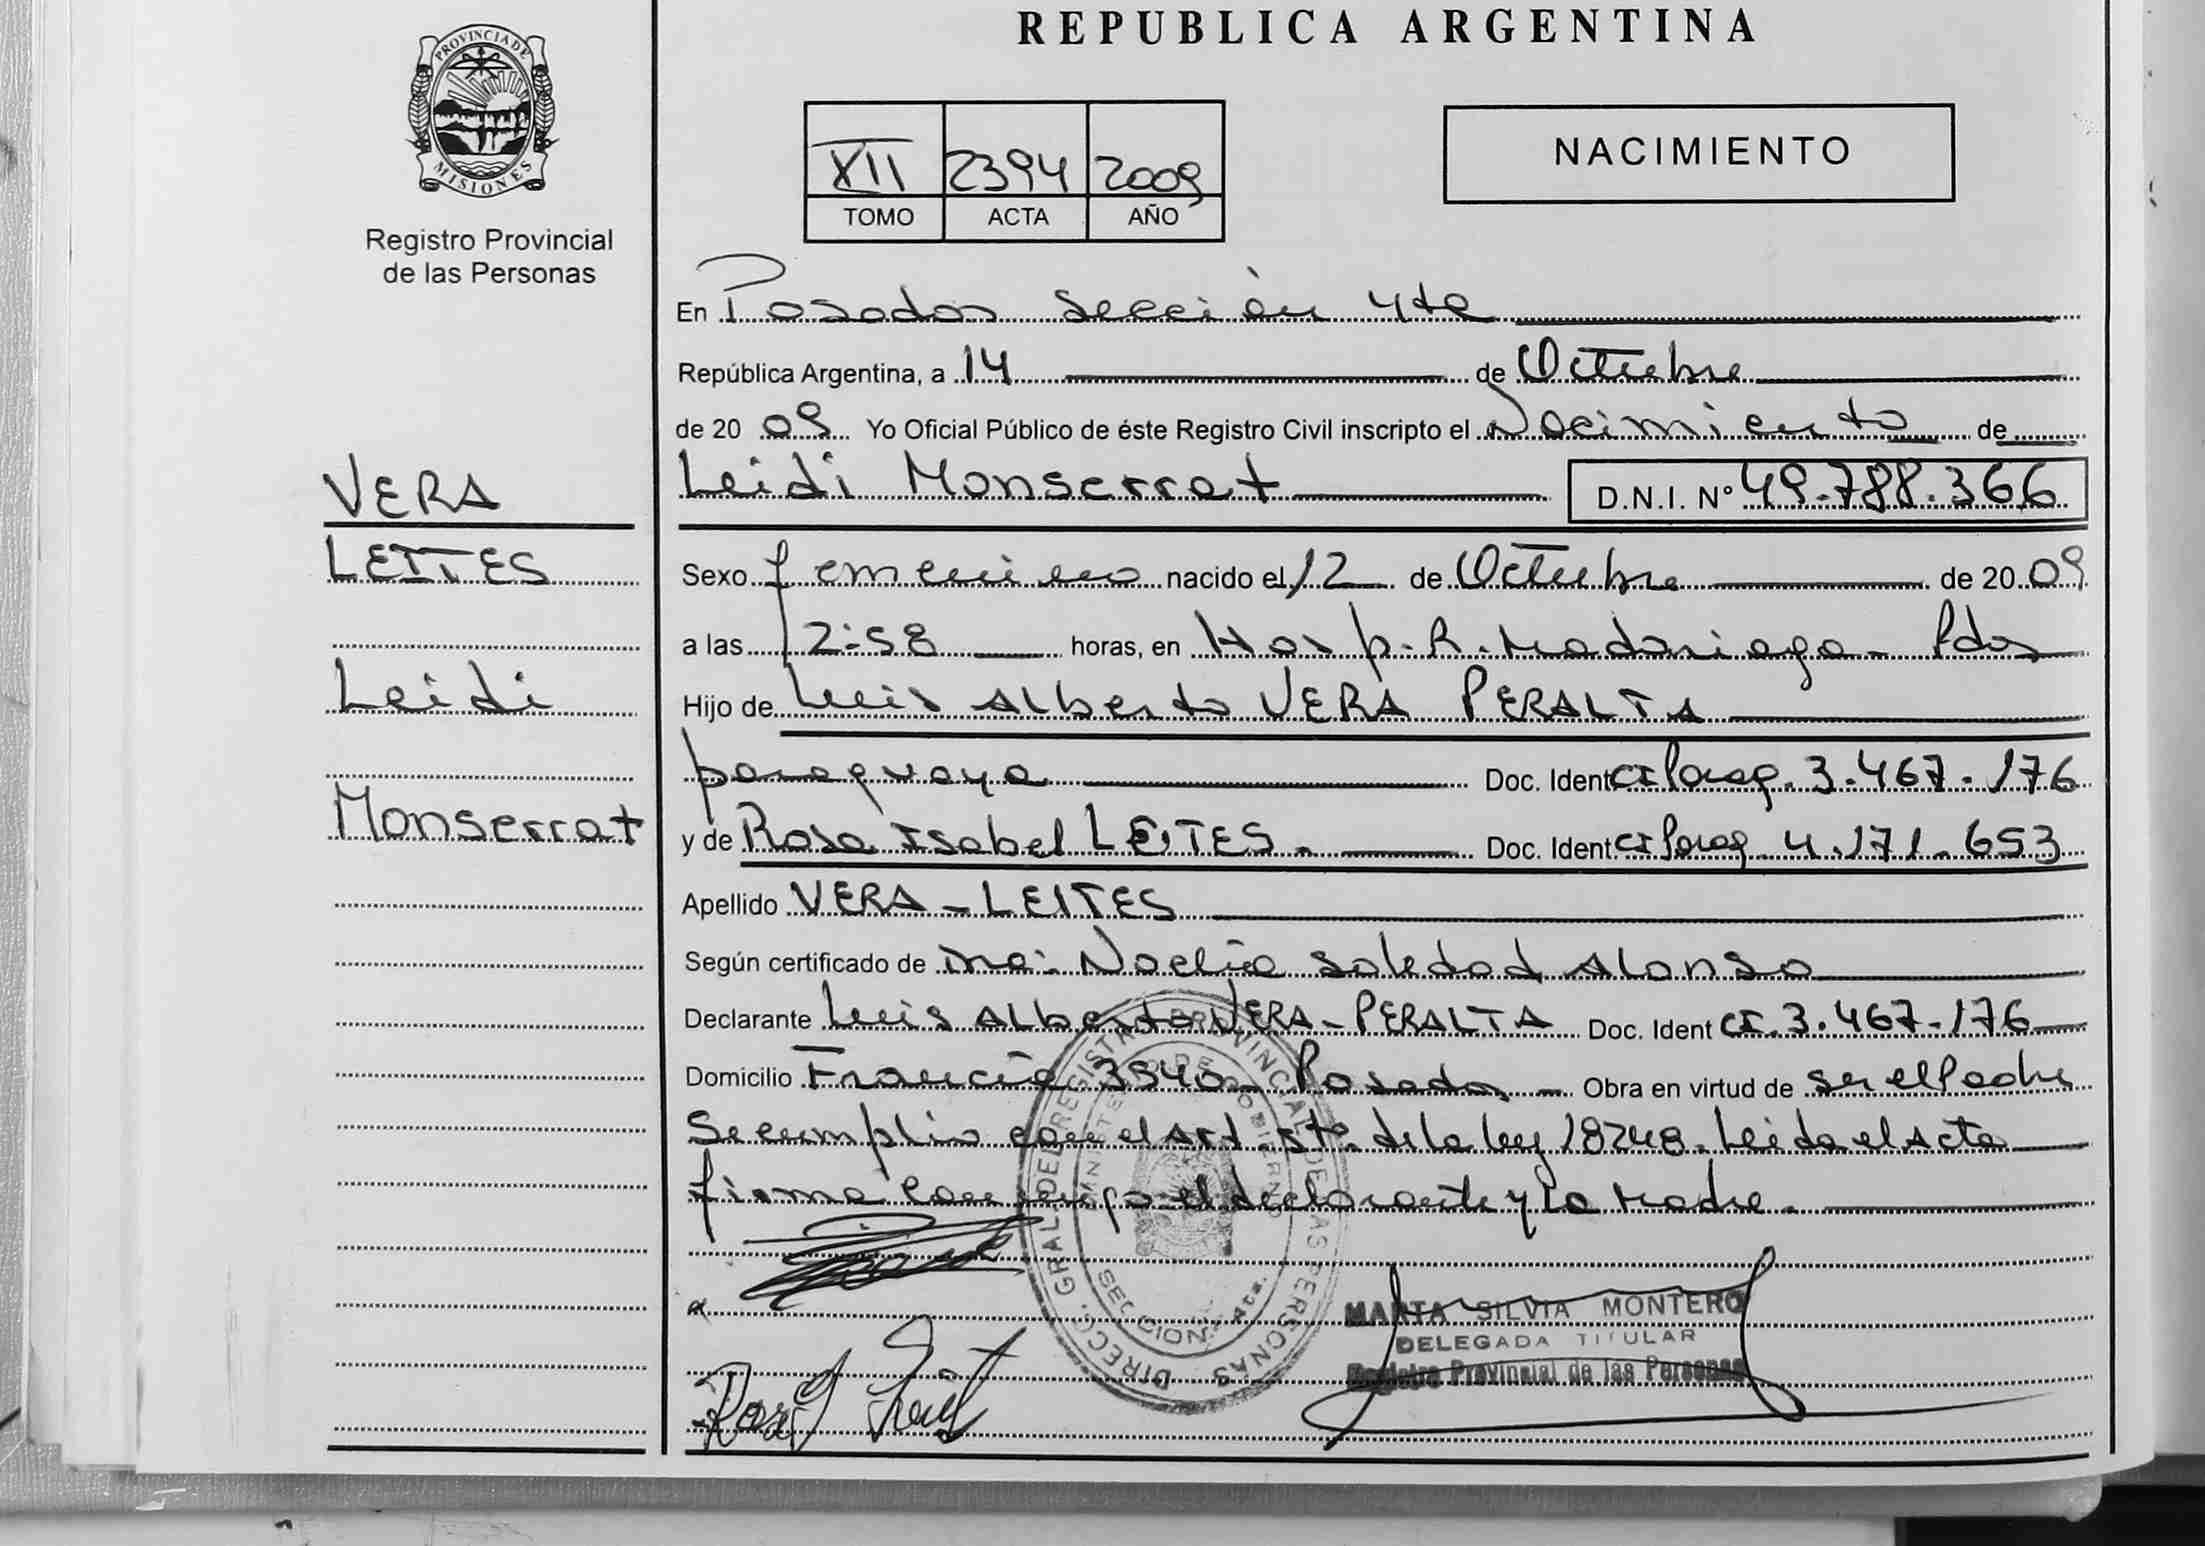 REPUBLICA ARGENTINA
PROVINCIA DE
MISIONES
Registro Provincial
de las Personas
XII 2394 2009
TOMO ACTA AÑO
NACIMIENTO
VERA
LEITES
Leidi
Monserrat
En Posadas sección 4ta
República Argentina, a 14 de Octubre
de 20 09 Yo Oficial Público de éste Registro Civil inscripto el Nacimiento de
Leidi Monserrat D.N.I. Nº 49.788.366
Sexo femenino nacido el 12 de Octubre de 20 09
a las 12:58 horas, en Hosp. R. Madariaga - Pdas
Hijo de Luis Alberto VERA PERALTA
paraguaya Doc. Ident CI Parag. 3.467.176
y de Rosa Isabel LEITES. Doc. Ident. CI Parag. 4.171.653
Apellido VERA - LEITES
Según certificado de Dra: Noelia Soledad Alonso
Declarante Luis Alberto VERA - PERALTA Doc. Ident CI. 3.467.176
Domicilio Francia 3540 - Posadas - Obra en virtud de ser el Padre
Se cumplio con el art. 5to. de la ley 18248. Leida el Acta
firma conmigo el declarante y la Madre.
DIRECC. GRAL. DEL REGISTRO PROVINCIAL DE LAS PERSONAS
MINISTERIO DE GOBIERNO
SECCION 4ta.
MARTA SILVIA MONTERO
DELEGADA TITULAR
Registro Provincial de las Personas